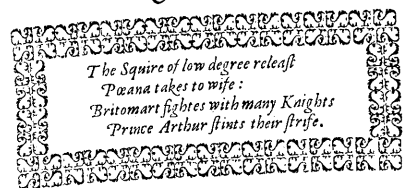 The Squire of low degree releaſt
Pœana takes to wife :
Britomart fightes with many Knights
Prince Arthur ſtints their ſtrife.